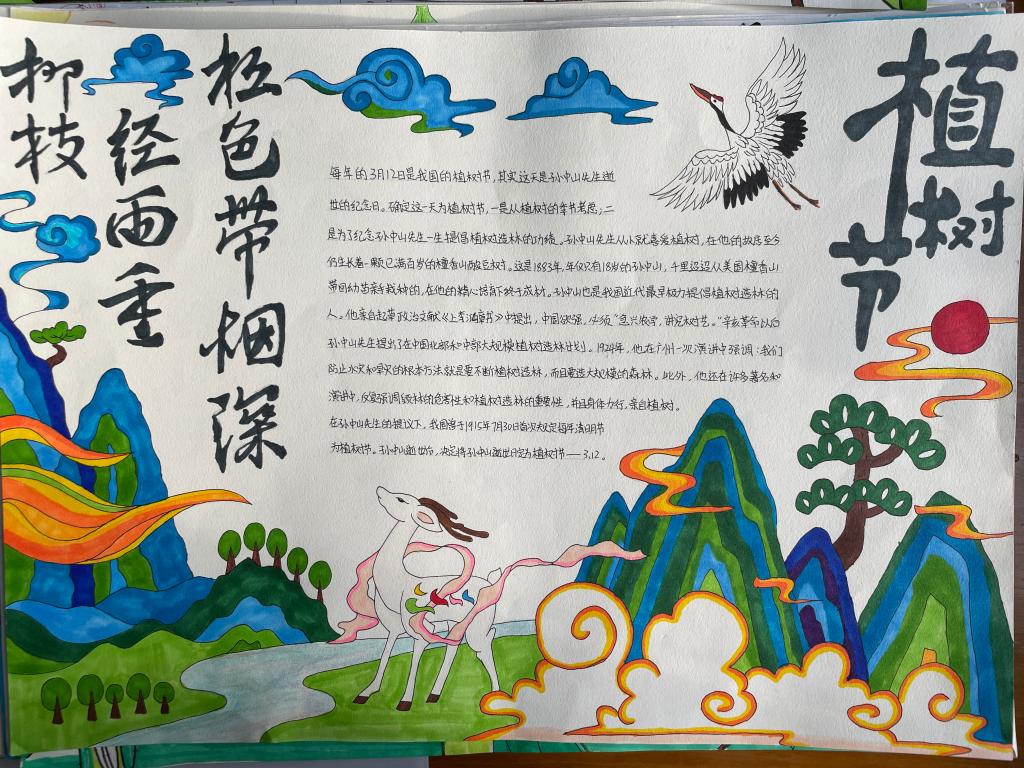 植树节
松色带烟深
柳枝经雨重
每年的3月12日是我国的植树节,其实这天是孙中山先生逝
世的纪念日。确定这一天为植树节,一是从植树的季节考虑;二
是为了纪念孙中山先生一生提倡植树造林的功绩。孙中山先生从小就喜爱植树,在他的故居至今
仍生长着一颗已满百岁的檀香山酸豆树。这是1883年,年仅只有18岁的孙中山,千里迢迢从美国檀香山
带回幼苗亲手栽种的,在他的精心培育下终于成材。孙中山也是我国近代最早极力提倡植树造林的
人。他亲自起草政治文献《上李鸿章书》中提出,中国欲强,必须“急兴农学,讲究树节。”辛亥革命以后
孙中山先生提出了在中国北部和中部大规模植树造林计划。1924年,他在广州一次演讲中强调:我们
防止水灾和旱灾的根本方法就是要不断植树造林,而且要造大规模的森林。此外,他还在许多著名和
演讲中,反复强调毁林的危害性和植树造林的重要性,并且身体力行,亲自植树。
在孙中山先生的提议下,我国于1915年7月30日首次规定每年清明节
为植树节。孙中山逝世后,决定将孙中山逝世日定为植树节——3.12。